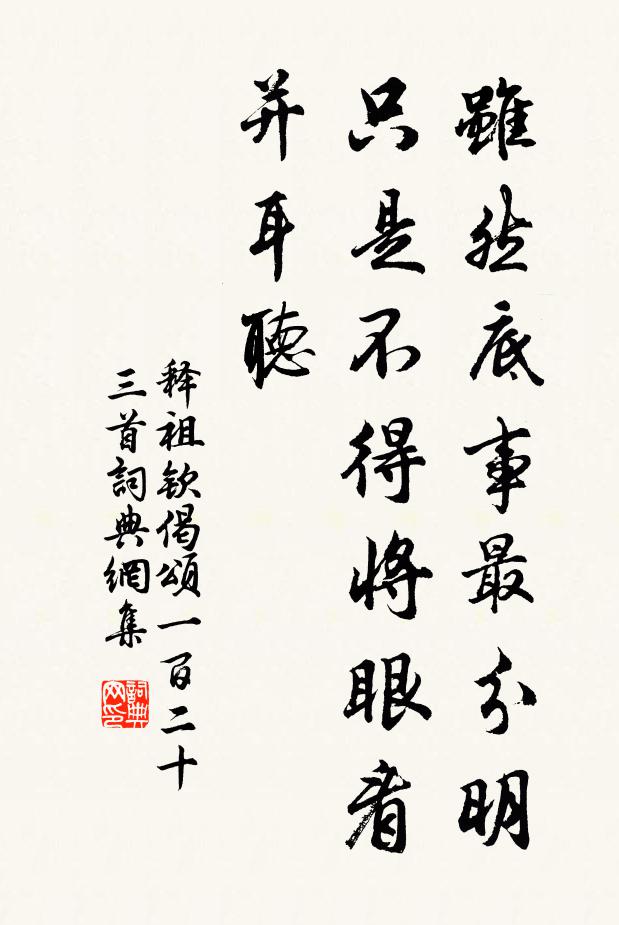 雖然底事最分明
只是不得將眼看
并耳聽
释祖欽偈頌一百二十
三首詞典網集
詞典
网印